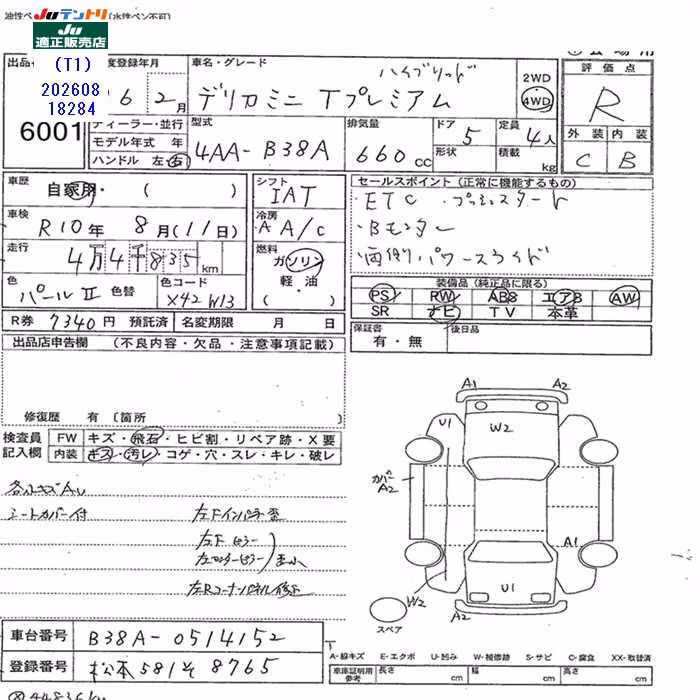 油性ペ JUテントリ (水性ペン不可)
JU 適正販売店
(T1)
202608
18284
出品
6001
度登録年月
6 2月
車名・グレード
ハイブリッド
デリカミニ Tプレミアム
2WD
4WD
会場用
評価点
R
外装 内装
C B
ディーラー・並行
モデル年式 年
ハンドル 左 右
型式
4AA-B38A
排気量
660cc
ドア 5
形状
定員 4人
積載 kg
車歴 自家用・( )
シフト IAT
セールスポイント (正常に機能するもの)
・ETC ・プッシュスタート
・Bモニター
・両側パワースライド
車検 R10年 8月(11日)
冷房 A A/C
走行 4万4千835km
燃料
ガソリン
軽油
( )
色 パールII 色替
色コード X42 W13
装備品 (純正品に限る)
PS RW ABS エアB AW
SR ナビ TV 本革
R券 7340円 預託済
名変期限 月 日
保証書 有・無
後日品
出品店申告欄 (不良内容・欠品・注意事項記載)
修復歴 有〔箇所
検査員記入欄
FW キズ・飛石・ヒビ割・リペア跡・X要
内装 キズ・汚レ・コゲ・穴・スレ・キレ・破レ
各小キズAU
シートカバー付
左Fインパネ歪
左Fピラー
左センターピラー 歪小
左Rコーナーパネル修正
A1 A2
U1 W2
カバー A2
A1
U1
W2
A2
スペア
車台番号 B38A-0514152
登録番号 松本581そ8765
A-線キズ E-エクボ U-凹み W-補修跡 S-サビ C-腐食 XX-取替済
車庫証明用参考 長さ cm 幅 cm 高さ cm
44836km